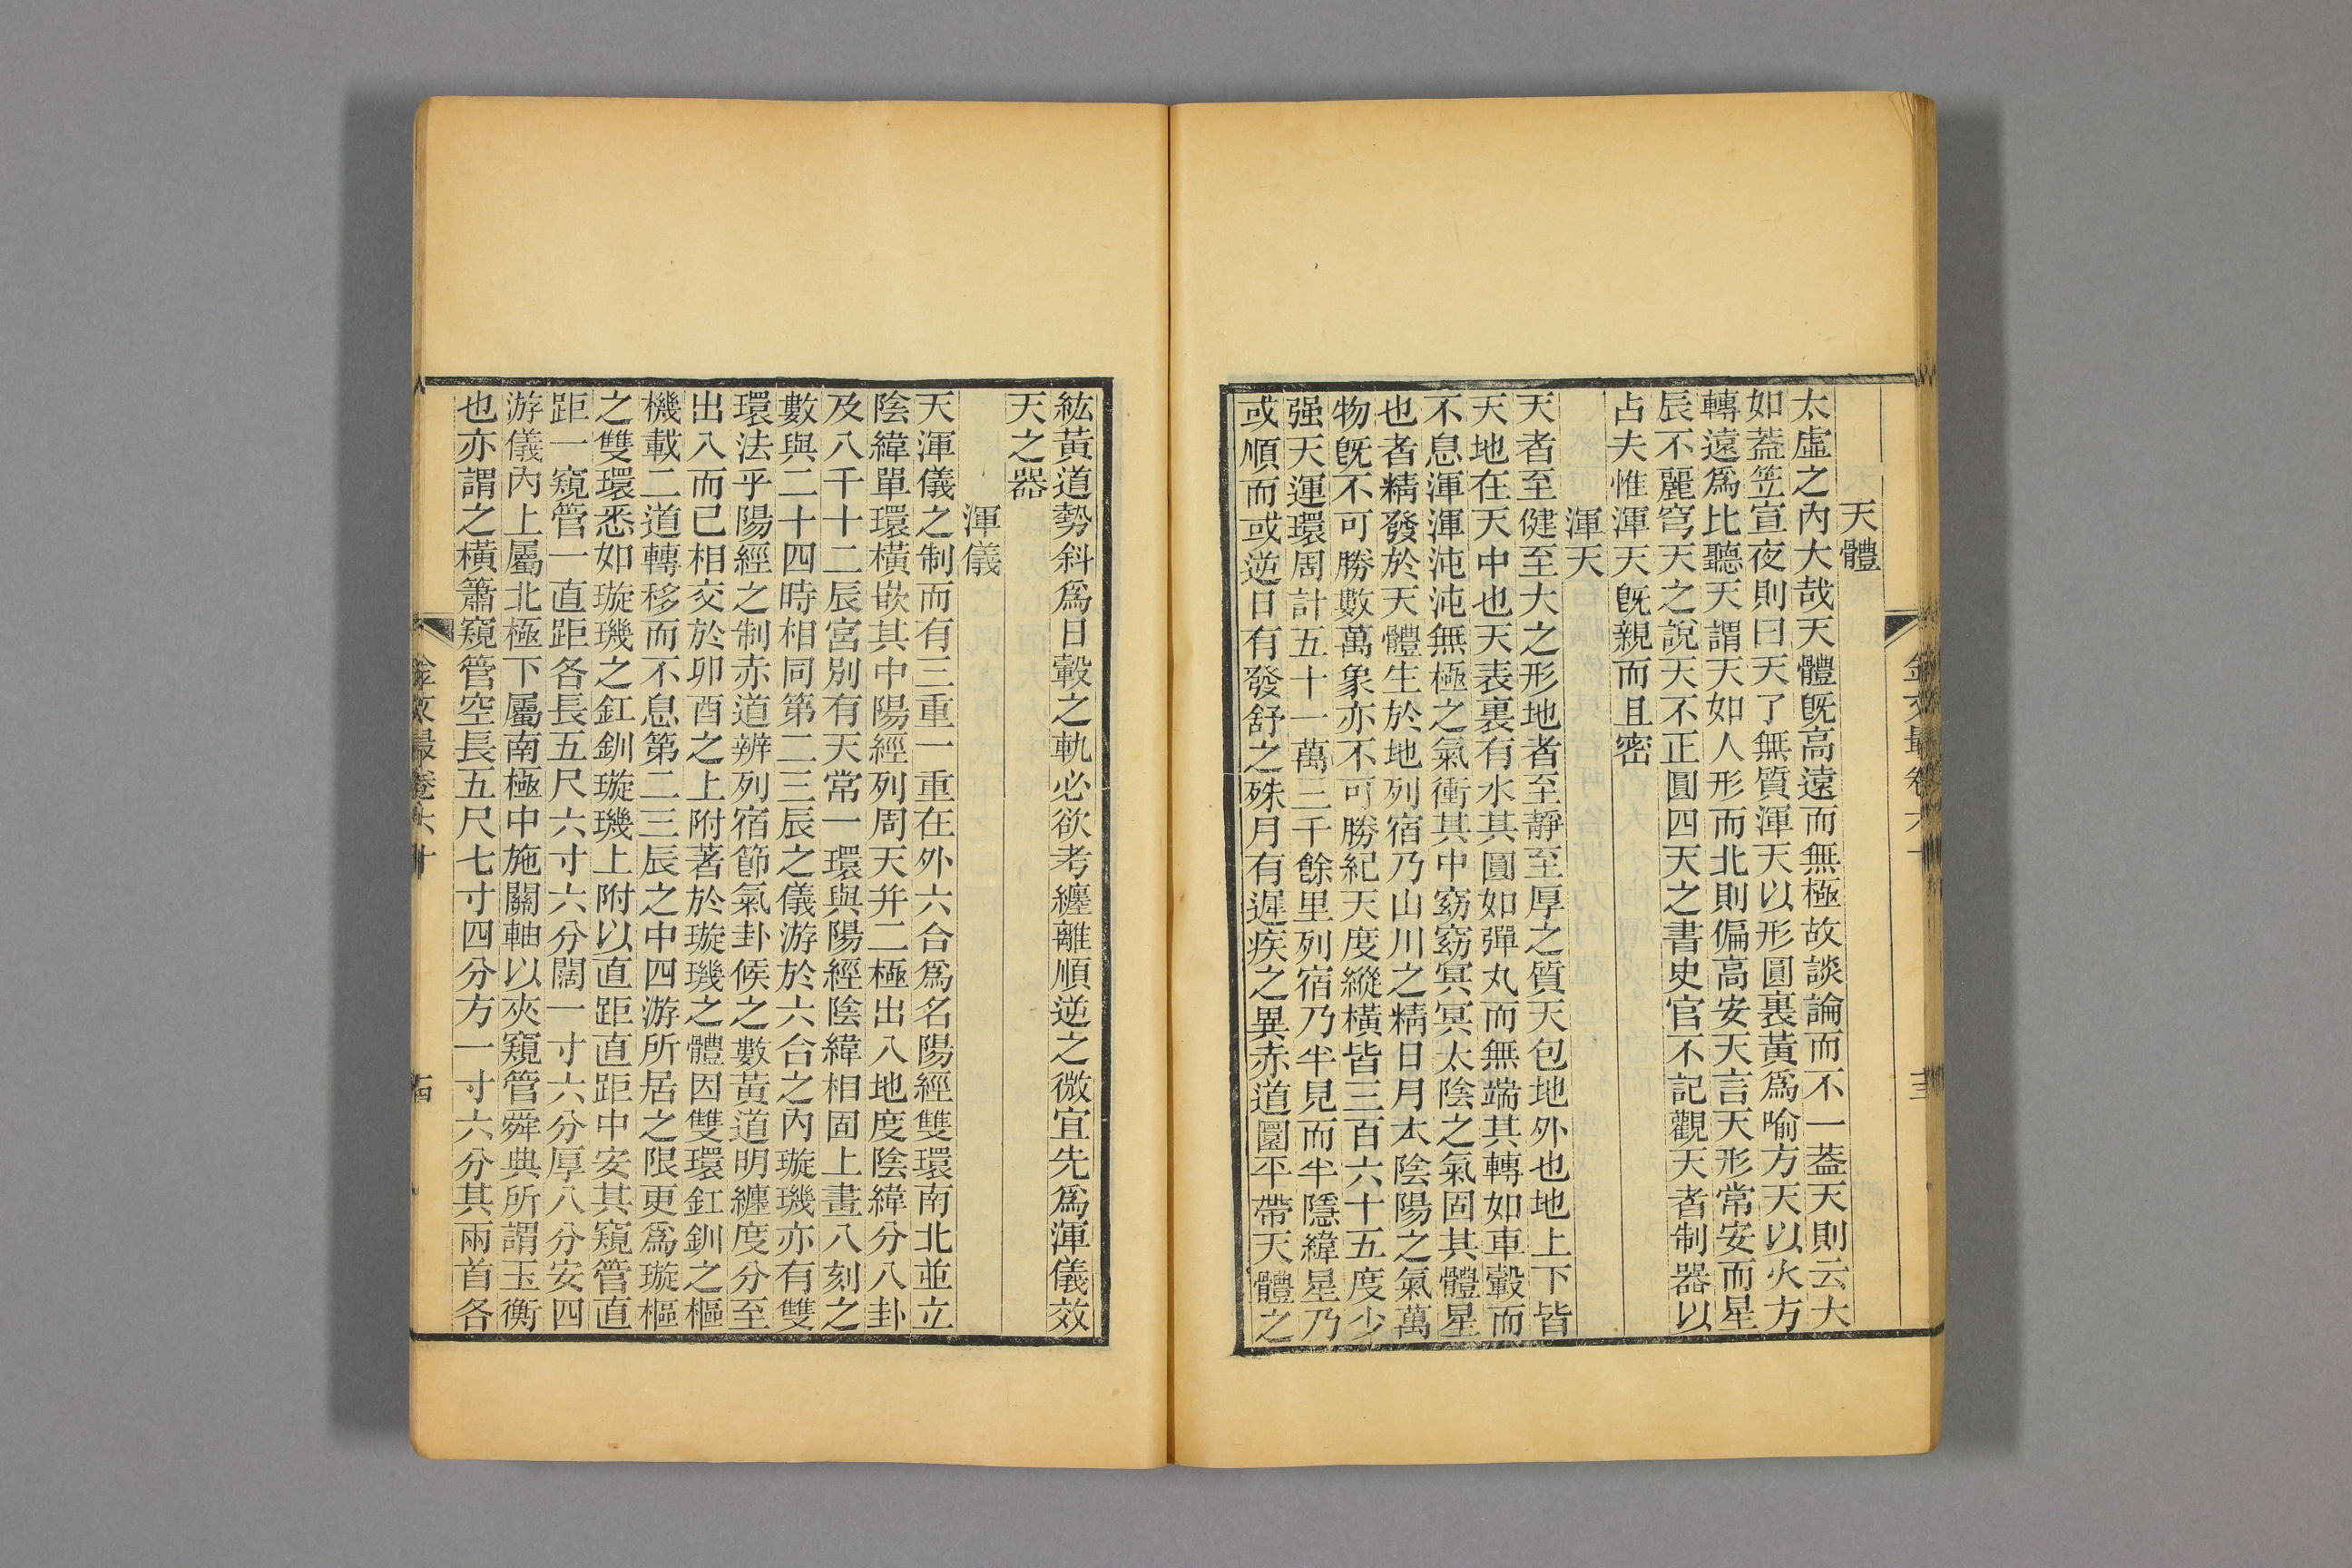 天體
太虛之內大哉天體旣高遠而無極故談論而不一蓋天則云大
如蓋笠宣夜則曰天了無質渾天以形圓裏黃爲喻方天以火方
轉遠爲比聽天謂天如人形而北則偏高安天言天形常安而星
辰不麗穹天之說天不正圓四天之書史官不記觀天者制器以
占夫惟渾天旣親而且密
渾天
天者至健至大之形地者至靜至厚之質天包地外也地上下皆
天地在天中也天表裏有水其圓如彈丸而無端其轉如車轂而
不息渾渾沌沌無極之氣衝其中窈窈冥冥太陰之氣固其體星
也者精發於天體生於地列宿乃山川之精日月本陰陽之氣萬
物旣不可勝數萬象亦不可勝紀天度縱橫皆三百六十五度少
强天運環周計五十一萬三千餘里列宿乃半見而半隱緯星乃
或順而或逆日有發舒之殊月有遲疾之異赤道圜平帶天體之
金文最卷六十
紘黃道勢斜爲日轂之軌必欲考纏離順逆之微宜先爲渾儀效
天之器
渾儀
天渾儀之制而有三重一重在外六合爲名陽經雙環南北並立
陰緯單環橫嵌其中陽經列周天并二極出入地度陰緯分八卦
及八千十二辰宮別有天常一環與陽經陰緯相固上畫八刻之
數與二十四時相同第二三辰之儀游於六合之內璇璣亦有雙
環法乎陽經之制赤道辨列宿節氣卦候之數黃道明纏度分至
出入而已相交於卯酉之上附著於璇璣之體因雙環釭釧之樞
機載二道轉移而不息第二三辰之中四游所居之限更爲璇樞
之雙環悉如璇璣之釭釧璇璣上附以直距直距中安其窺管直
距一窺管一直距各長五尺六寸六分闊一寸六分厚八分安四
游儀內上屬北極下屬南極中施關軸以夾窺管舜典所謂玉衡
也亦謂之橫簫窺管空長五尺七寸四分方一寸六分其兩首各
金文最卷六十